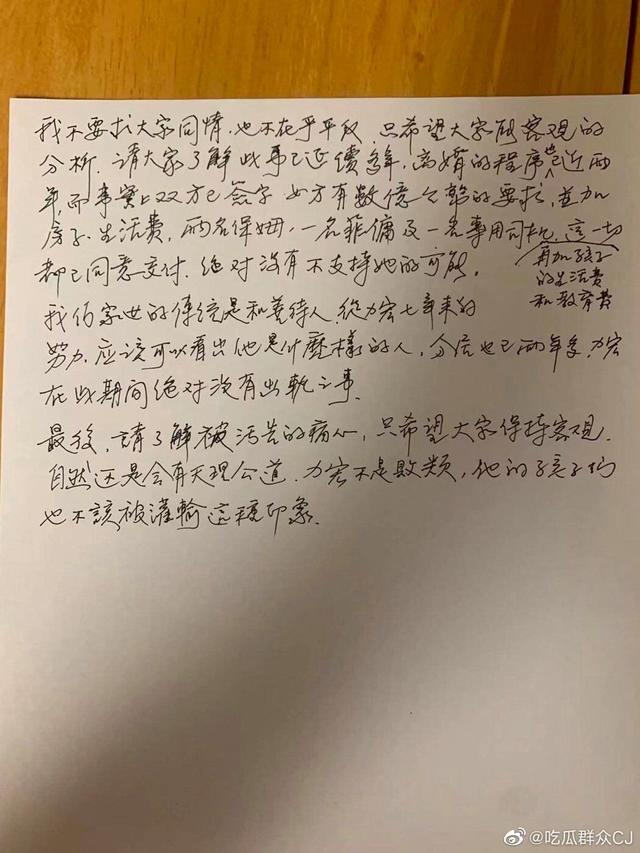 我不要求大家同情，也不在乎平反，只希望大家能客观的
分析．请大家了解此事已延續多年，离婚的程序也已近两
年，而事實上双方已簽字．女方有數億金额的要求，並加
房子．生活費，两名保姆．一名菲傭及一名專用司机，這一切
再加孩子
的生活费
和教育费
都已同意交付．絕对没有不支持她的可能．
我们家世的傳統是和善待人．從力宏七年來的
努力，应该可以看出他是什麼樣的人，分居也已两年多，力宏
在此期间絕对沒有出軌之事．
最後，請了解被污蔑的痛心，只希望大家保持客观．
自然还是会有天理公道．力宏不是敗類，他的孩子们
也不該被灌輸這種印象．
@吃瓜群众CJ